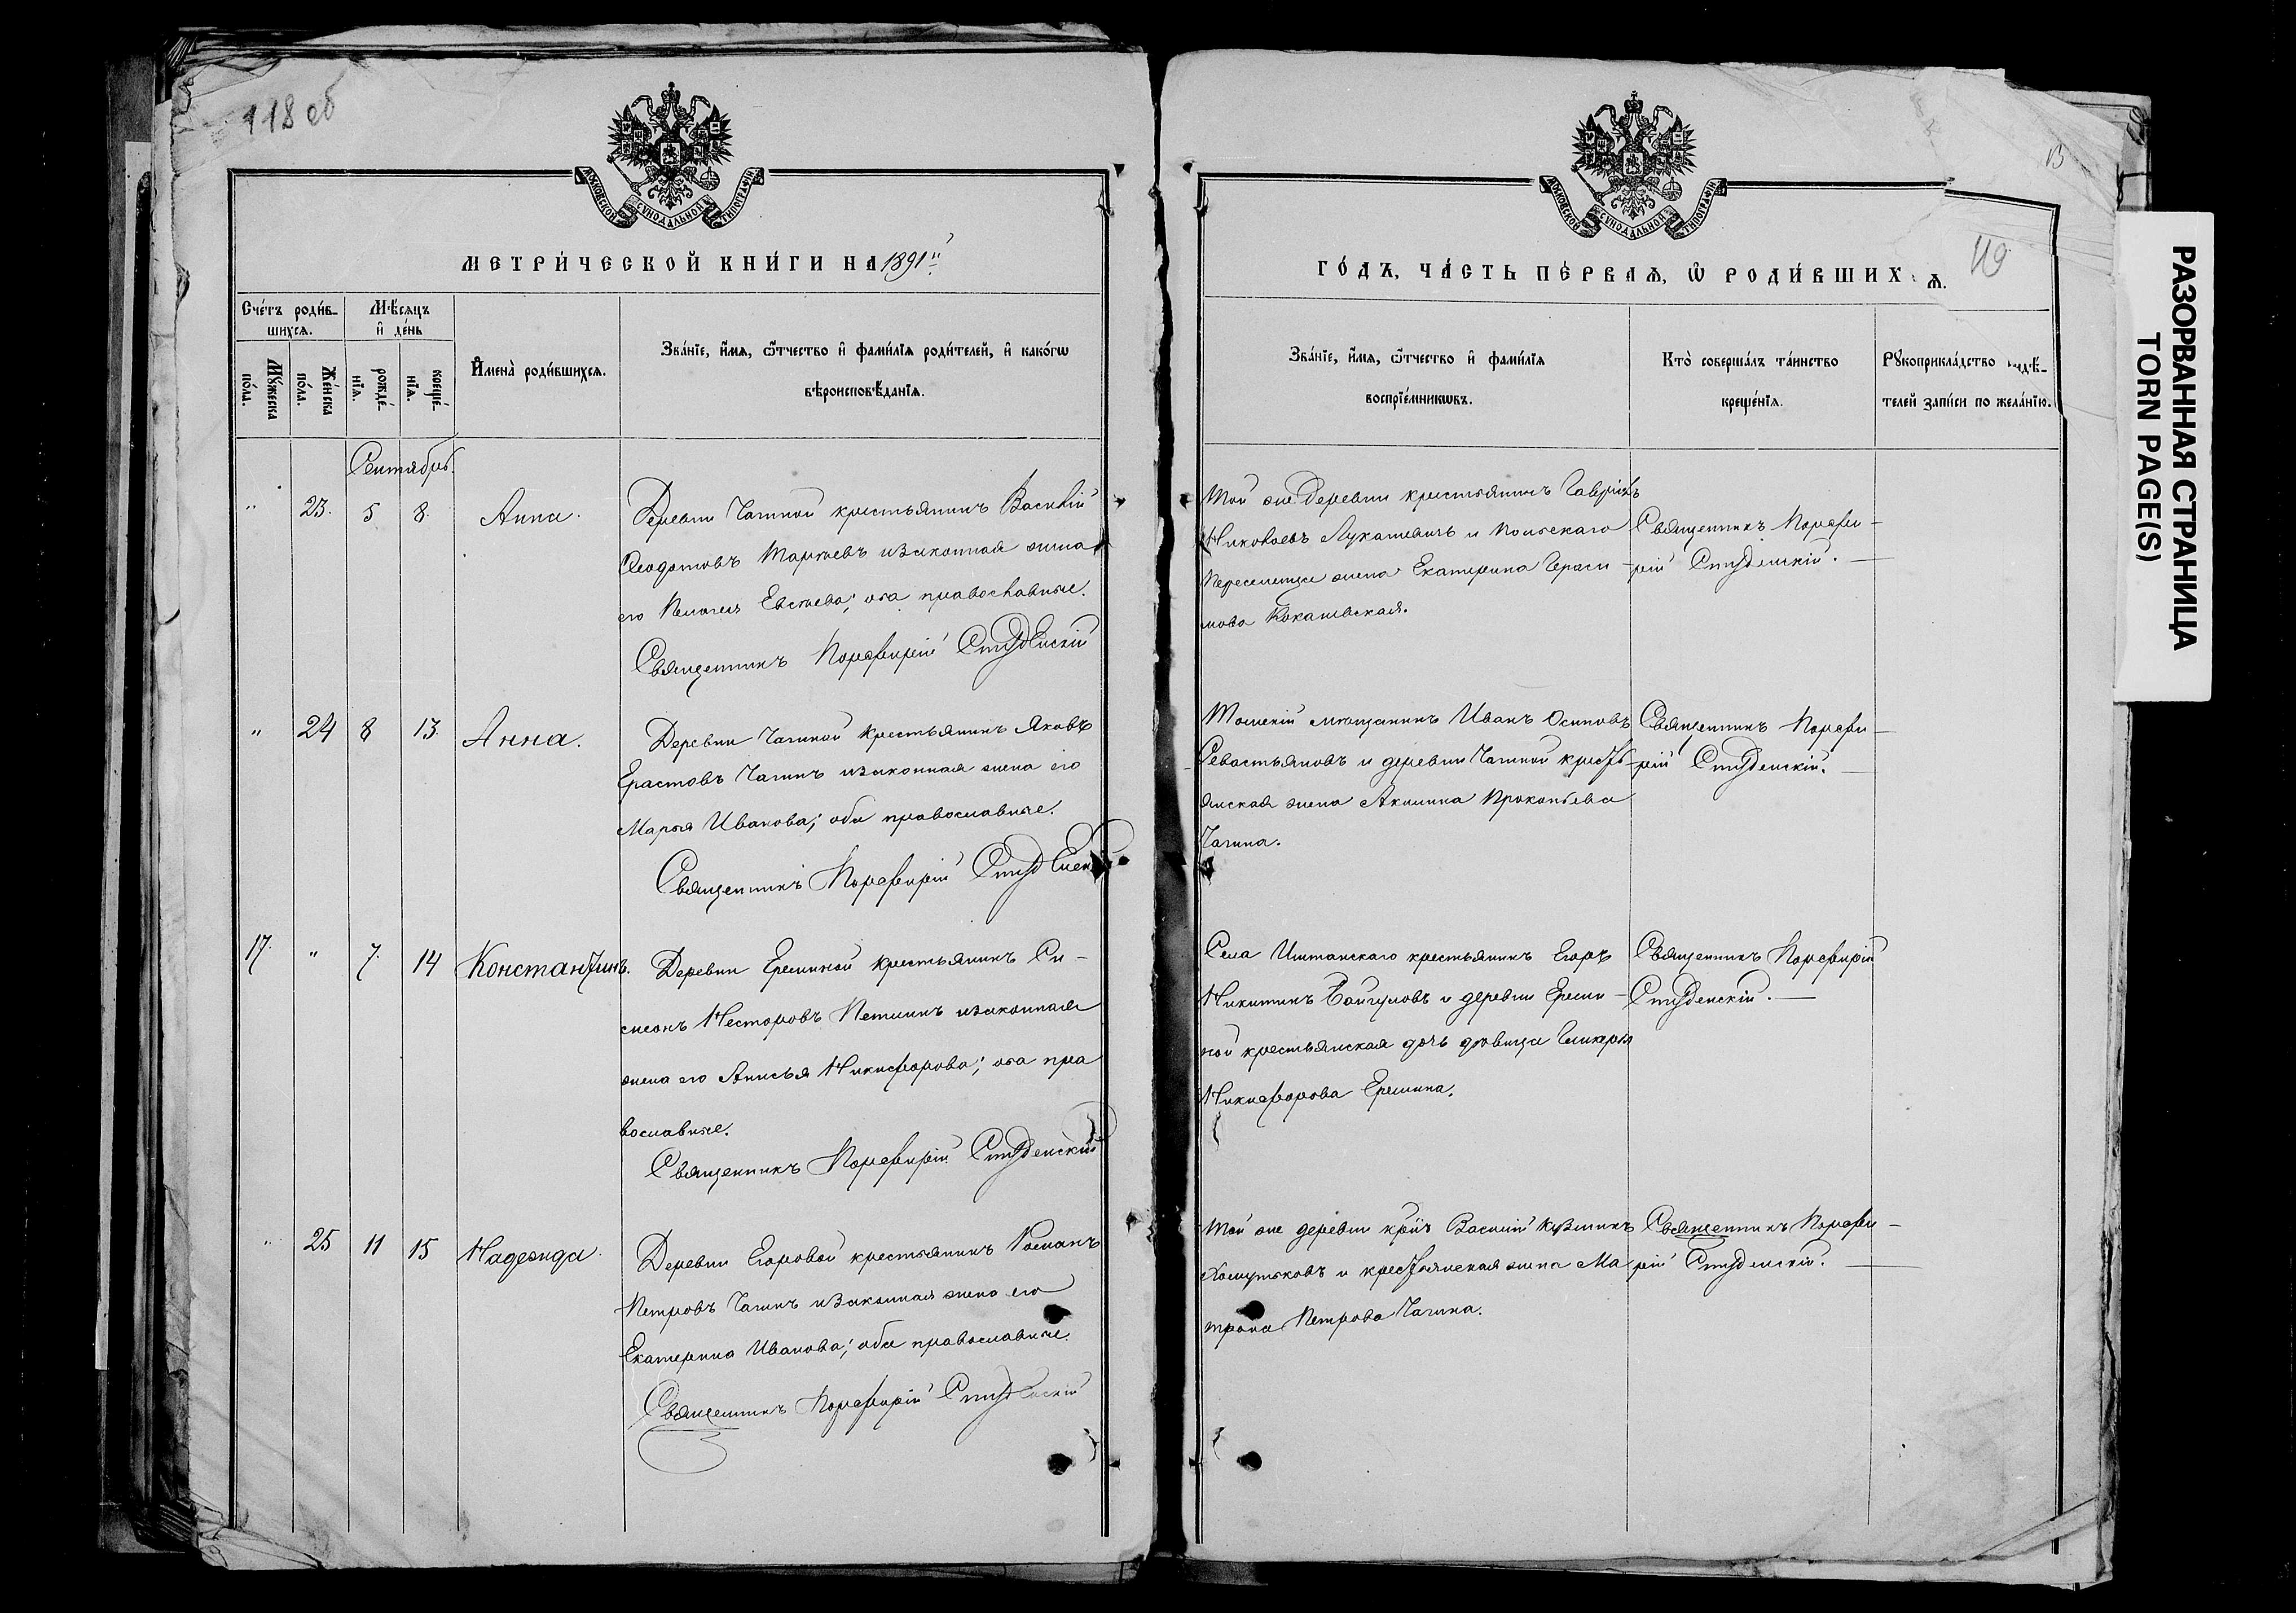 118 об
МОСКОВСКОЙ СѴНОДАЛЬНОЙ ТИПОГРАФІИ
МЕТРИ́ЧЕСКОЙ КНИ́ГИ НА 1891й
Сче́тъ роди́в-
шихсѧ.
Мꙋ́жеска
по́ла.
Же́нска
по́ла.
Мѣ́сѧцъ
и҆ де́нь
рожде́-
нїѧ.
креще́-
нїѧ.
И҆мена̀ роди́вшихсѧ.
Зва́нїе, и҆́мѧ, ѻ҆́тчество и҆ фами́лїѧ роди́телей, и҆ како́гѡ
вѣроисповѣ́данїѧ.
Сентябрь.
" 23. 5 8. Анна.
Деревни Чагиной крестьянинъ Василій
Ѳеодотовъ и законная жена
его Пелагея оба православные.
Священникъ Порфирій Студенскій
" 24 8 13 Анна.
Деревни Чагиной крестьянинъ Яковъ
Ерастовъ Чагинъ и законная жена его
Марья Иванова; оба православные.
Священникъ Порфирій Студенскій
17. " 7. 14 Константинъ.
Деревни Ереминой крестьянинъ Си-
меонъ Несторовъ и законная
жена его Анисья Никифорова; оба пра
вославные.
Священникъ Порфирій Студенскій
" 25 11 15 Надежда
Деревни Егоровой крестьянинъ Романъ
Петровъ Чагинъ и законная жена его
Екатерина Иванова; оба православные.
Священникъ Порфирій Студенскій
13
119
МОСКОВСКОЙ СѴНОДАЛЬНОЙ ТИПОГРАФІИ
ГО́ДЪ, ЧА́СТЬ ПЕ́РВАѦ, Ѡ҆ РОДИ́ВШИХ Ѧ.
Зва́нїе, и҆́мѧ, ѻ҆́тчество и҆ фами́лїѧ
воспрїе́мникѡвъ.
Кто̀ соверша́лъ та́инство
креще́нїѧ.
Рꙋкоприкла́дство идѣ́-
телей за́писи по жела́нїю.
Той же деревни крестьянинъ Гавріилъ
Николаевъ Лукашевичъ и польскаго
переселенца жена Екатерина Гераси-
мова
Священникъ Порфи-
рій Студенскій.
Томскій мѣщанинъ Иванъ Осиповъ
Севастьяновъ и деревни Чагиной кресть-
янская жена Акилина Прокопьева
Чагина.
Священникъ Порфи-
рій Студенскій.
Села Иштанскаго крестьянинъ Егоръ
Никитинъ и деревни Ереми-
ной крестьянская дочь дѣвица Гликерія
Никифорова Еремина.
Священникъ Порфирій
Студенскій.
Той же деревни Василій Кузминъ
Хомутковъ и крестьянская жена Ма
трона Петрова Чагина.
Священникъ Порфи-
рій Студенскій.
РАЗОРВАННАЯ СТРАНИЦА
TORN PAGE(S)